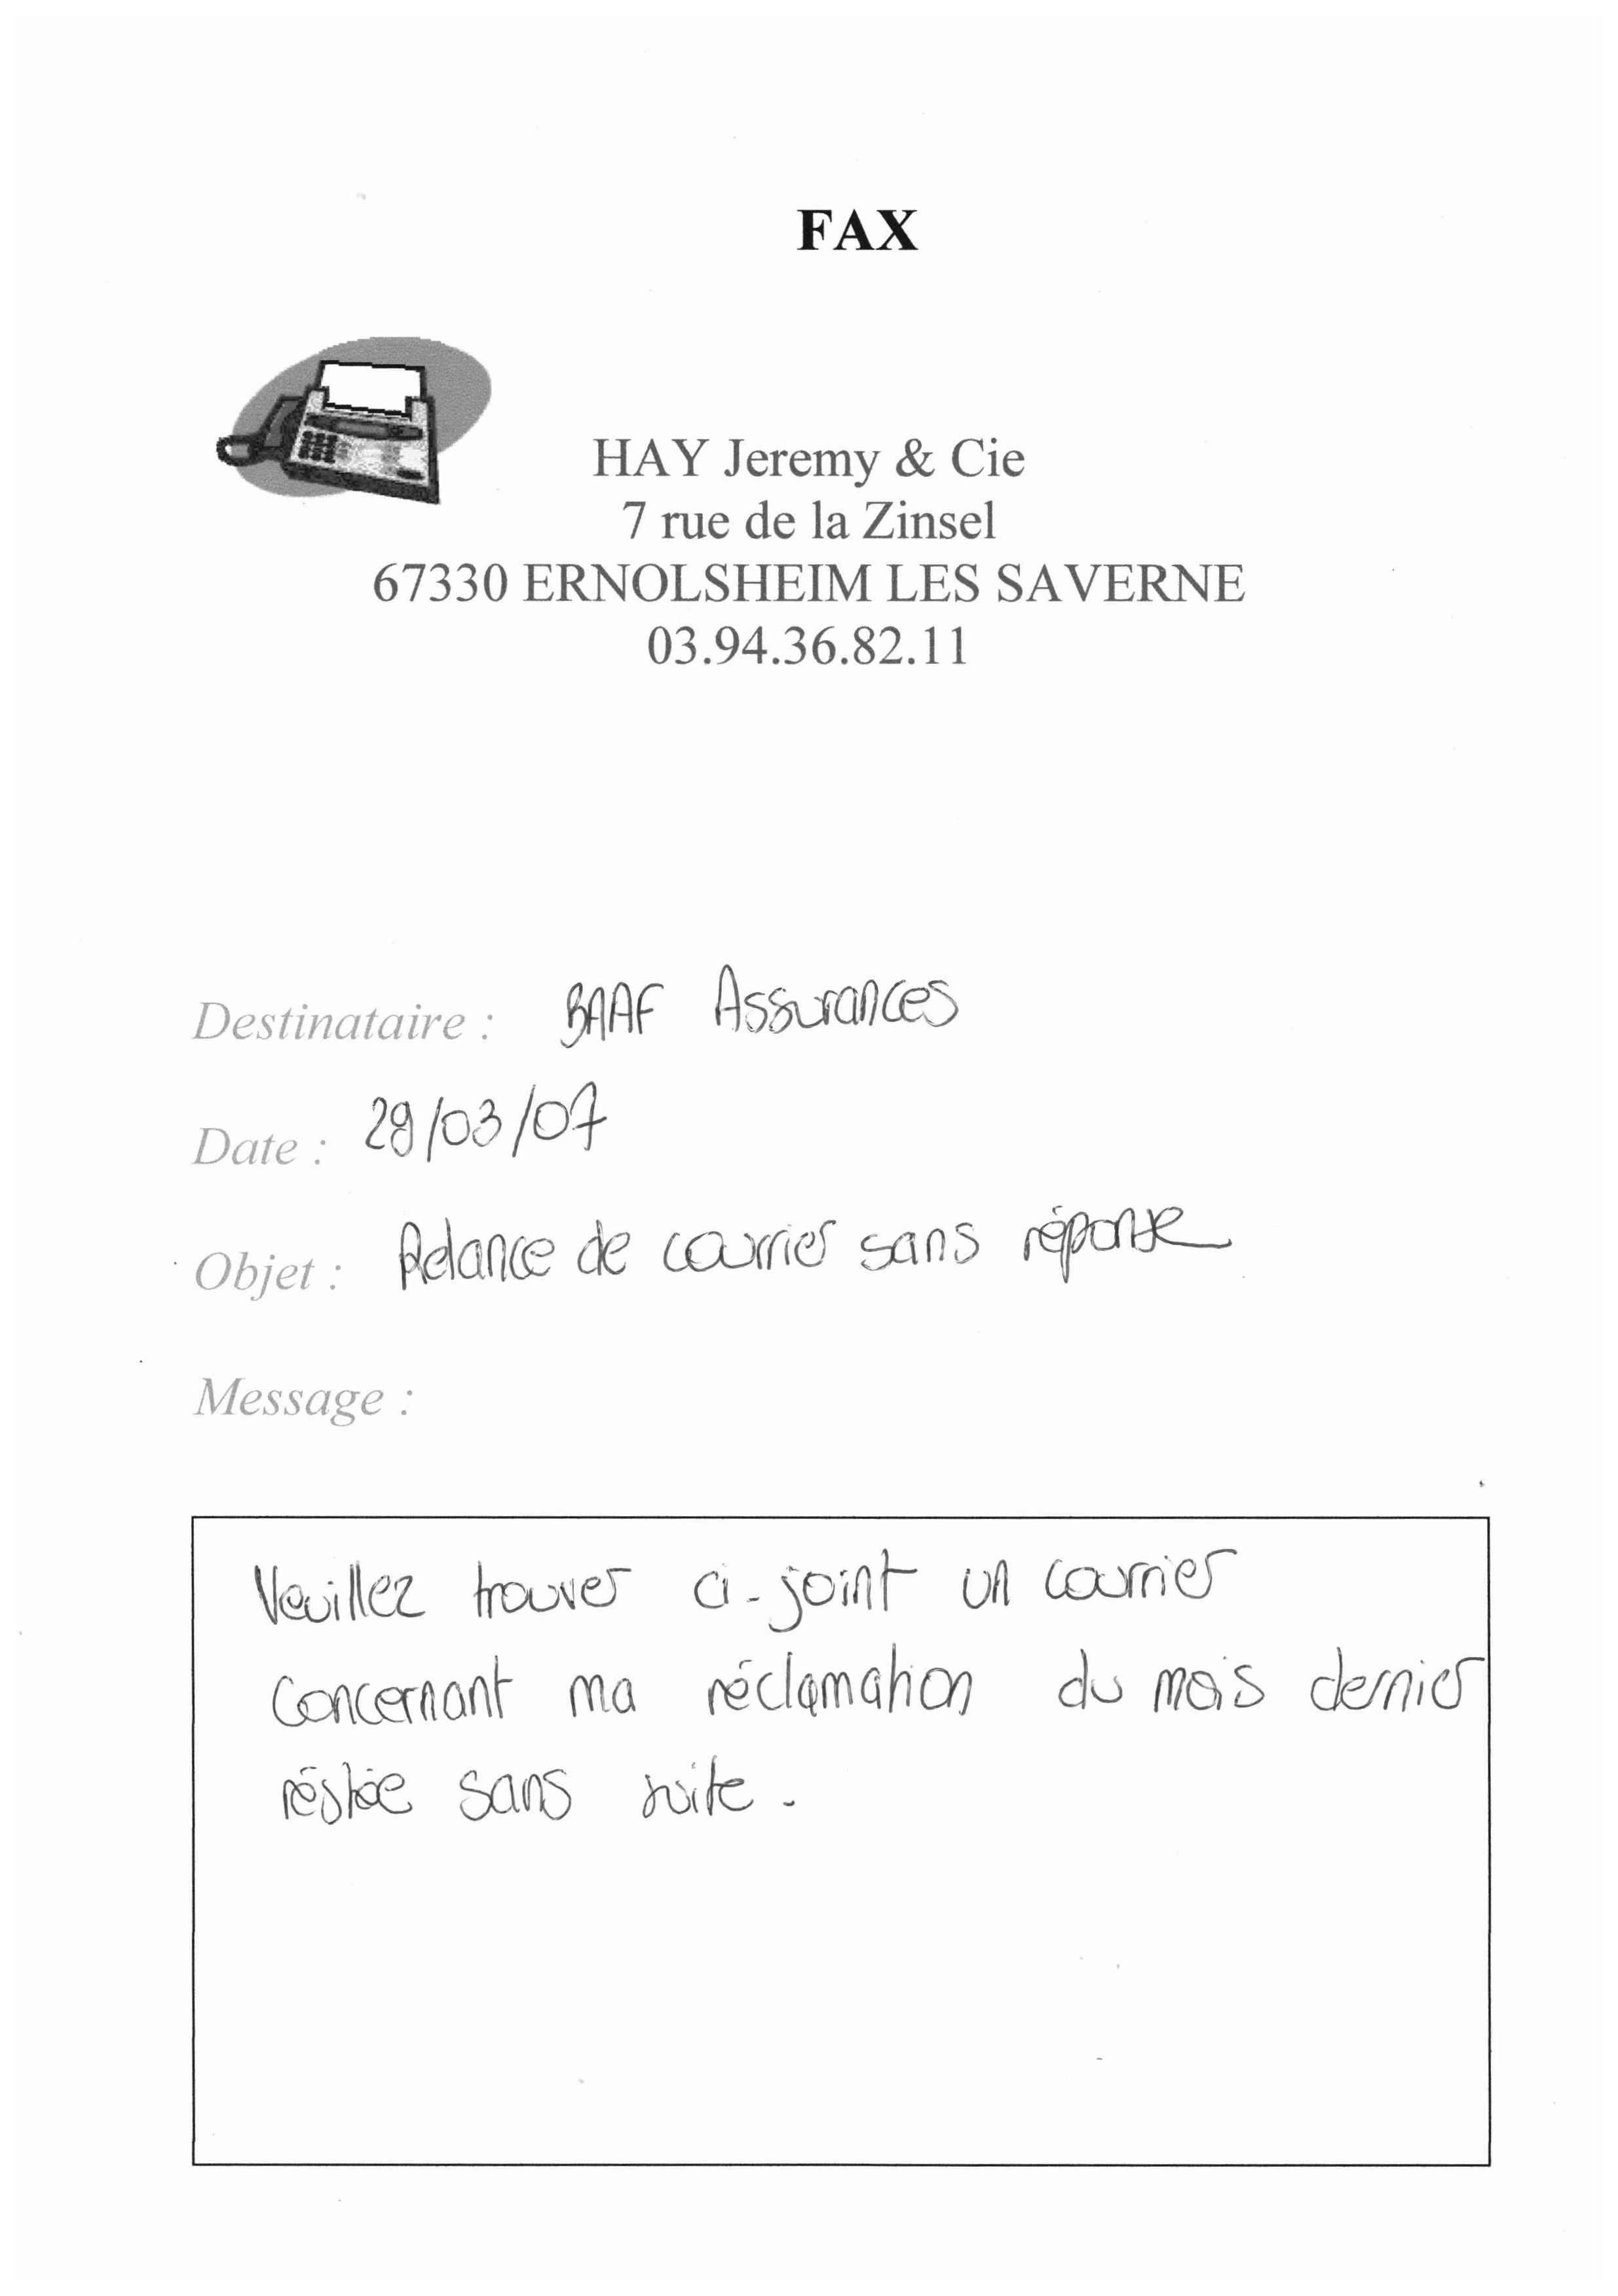 FAX
HAY Jeremy & Cie
7 rue de la Zinsel
67330 ERNOLSHEIM LES SAVERNE
03.94.36.82.11
Destinataire : BAAF Assurances
Date : 29/03/07
Objet : Relance de courrier sans réponse
Message :
Veuillez trouver ci-joint un courrier
concernant ma réclamation du mois dernier
réstée sans suite.